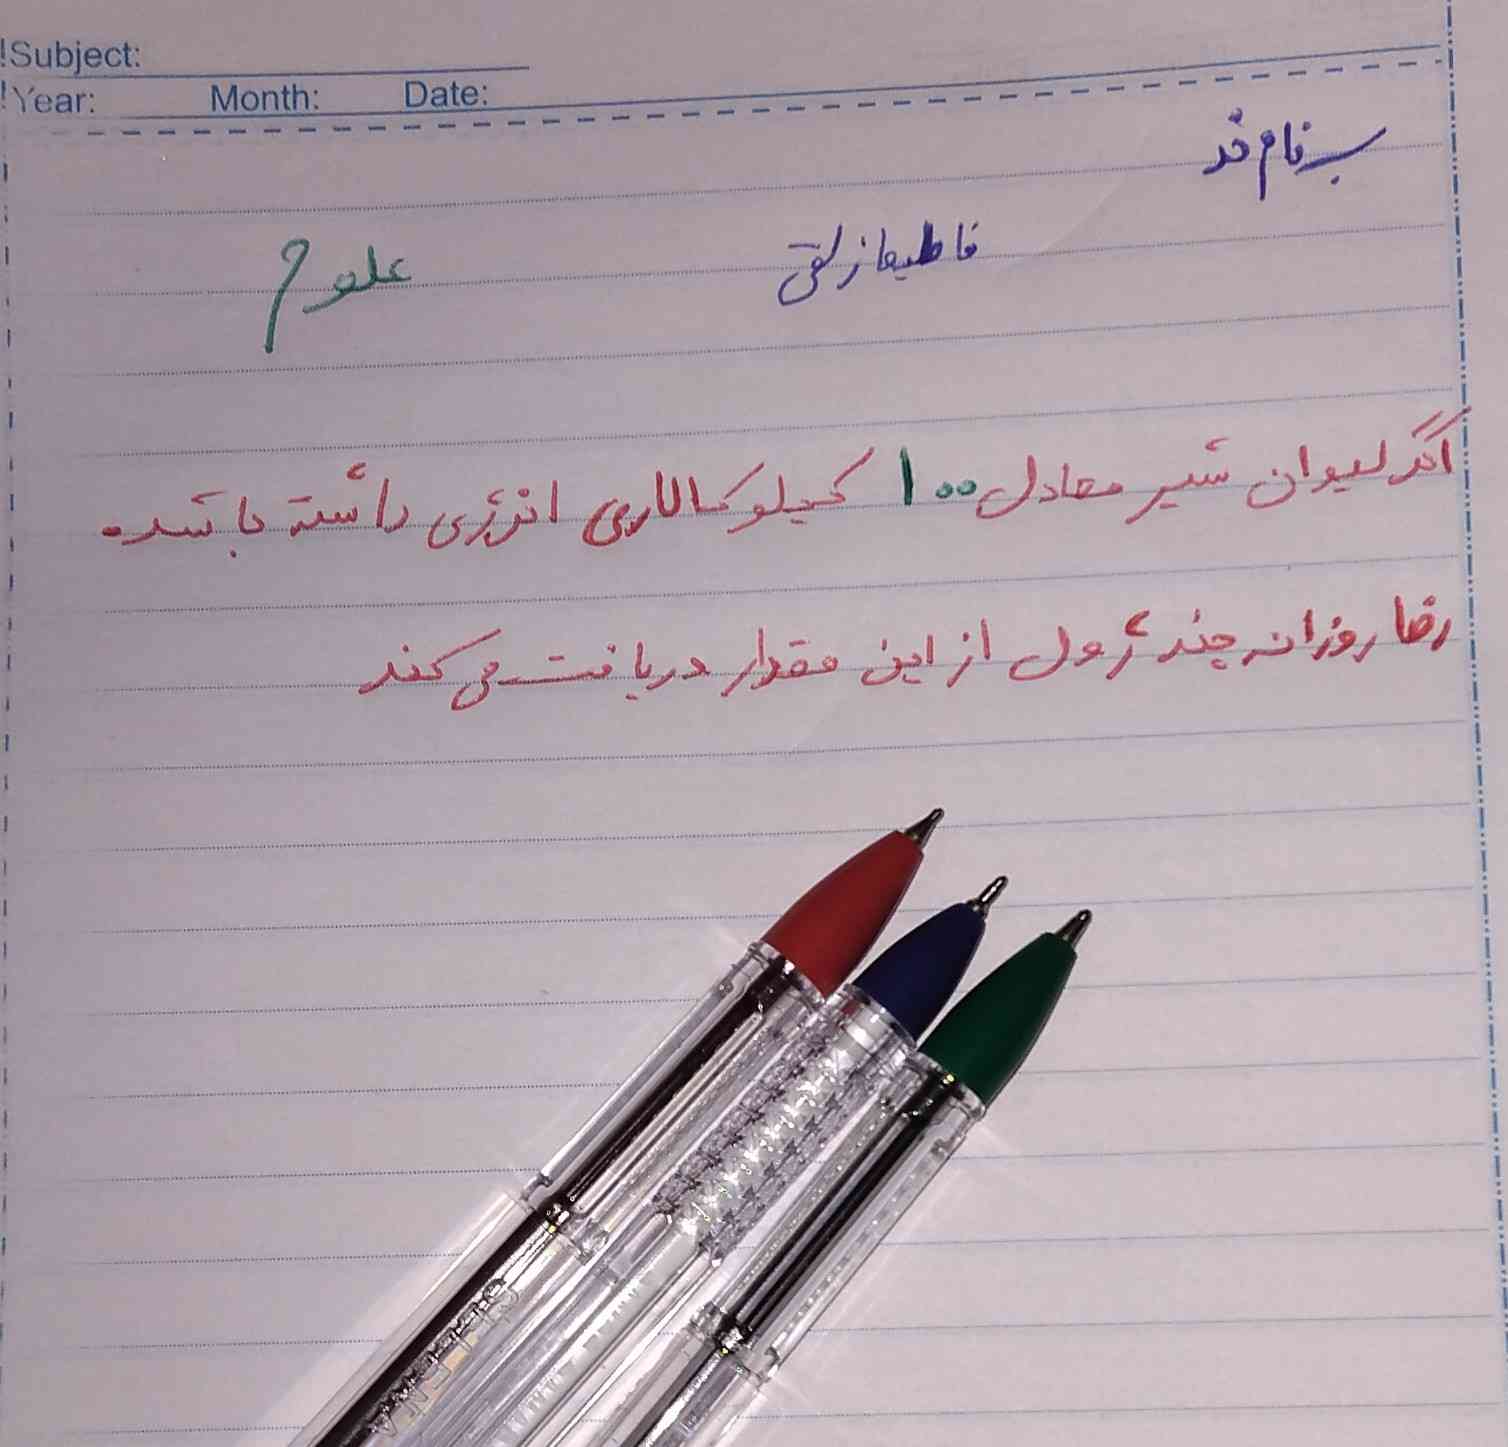 Subject:
Year: Month: Date:
به نام خدا
علوم
اگر لیوان شیر معادل ۱۰۰ کیلو کالاری انرژی داشته باشد.
رضا روزانه چند ژول از این مقدار دریافت می کند